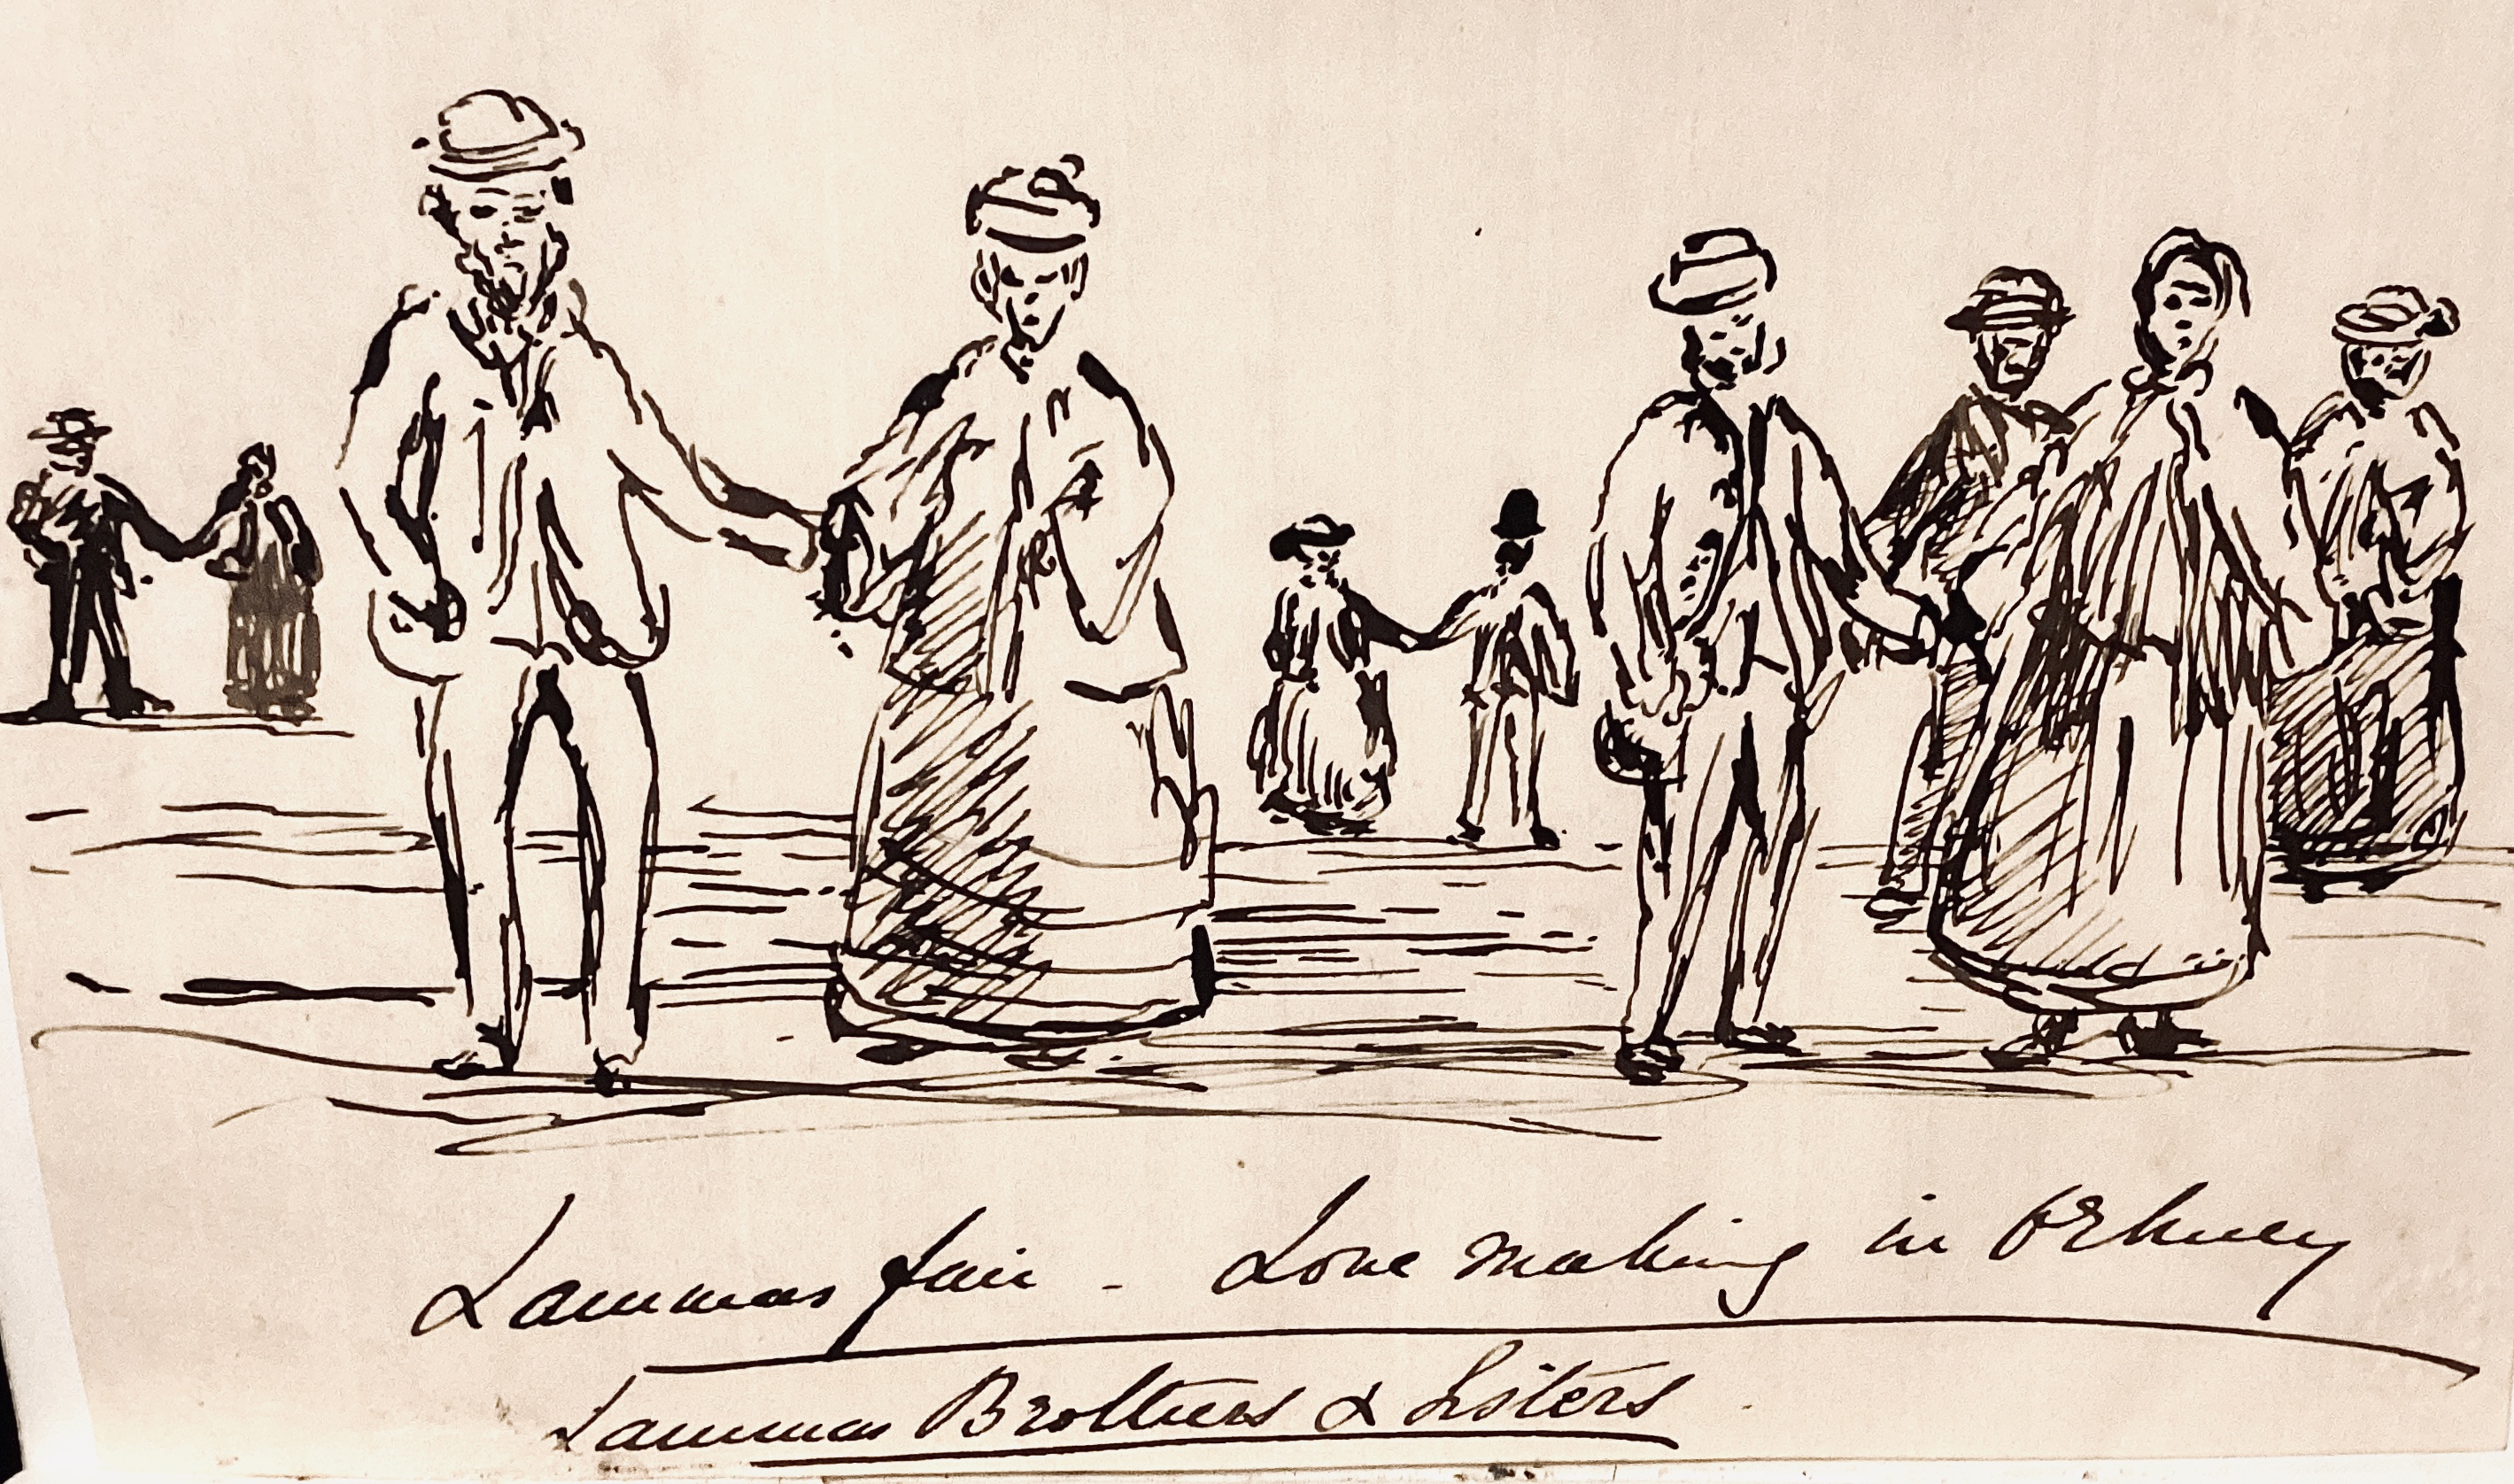 Lammas fair - Love making in Orkney
Lammas Brothers & Sisters